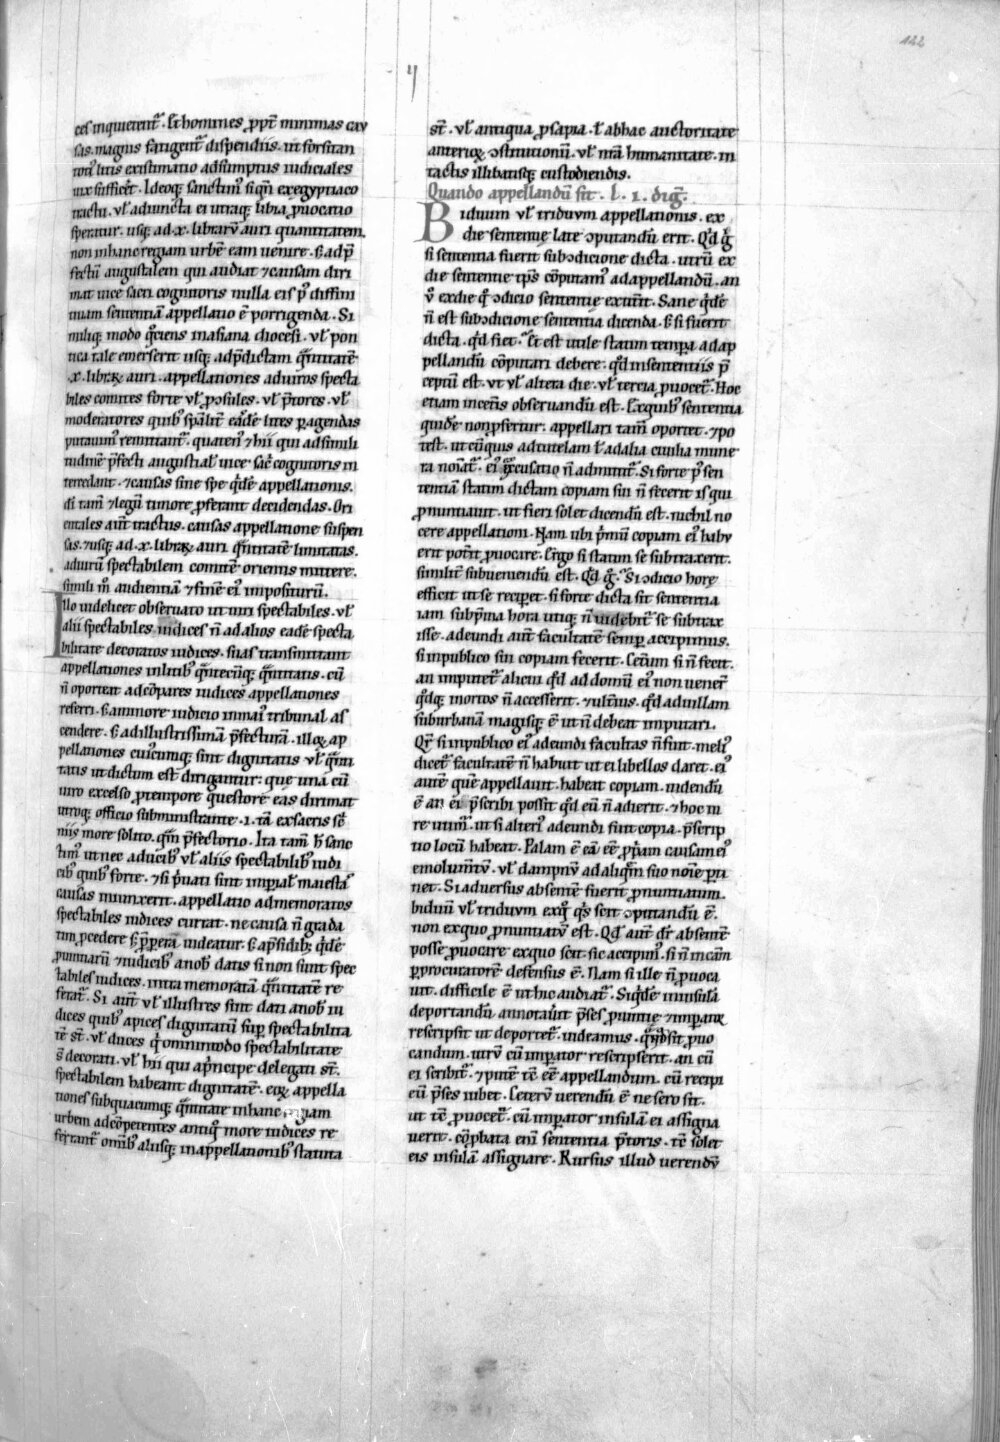 142
ces inquietent᷑. Et hom̅ines ꝓpt̅ minimas cau
sas. magnis fatigent᷑ dispendiis. ut forsitan
toti᷒ litis existimatio ad sumptus iudiciales
uix sufficer̅et. Ideoq; sanctim᷒ siqn̅ ex egyptiaco
tractu. uł adiuncta ei utraq; libia ꝓuocatio
speratur. usq; ad .x. librarū auri quantitatem.
non in hanc regiam urbē eam uenire. s; ad p̅
fectū augustalem qui audiat ⁊ causam diri
mat uice sacri cognitoris nulla eis p᷒ diffini
tiuam sententiā appellatio ē porrigenda. Si
miliq; modo q°ciens in asiana diocesi. uł pon
tica tale emerserit usq; ad p̅dictam q̅ntitatē
.x. libraꝝ auri. appellationes ad uiros specta
biles comites forte uł ꝓ̱sules. uł p̅tores. uł
moderatores quib᷒ sp̅alit̅ eądē lites ꝑagendas
putauim᷒ remittant᷑. quaten᷒ ⁊ hii qui ad simili
tudinē p̅fecti augustał uice sac̅ cognitoris in
tercedant. ⁊ causas sine spe q̅dē appellationis.
dī tam̅ ⁊ legū timore ꝓferant decidendas. Ori
entales aut̅ tractus. causas appellatione suspen
sas. ⁊ usq; ad .x. libraꝝ auri q̅ntitatē limitatas.
ad uirū spectabilem comitē orientis mittere.
simili m̊ audientiā ⁊ finē ei᷒ impositurū.
Illo uidelicet obseruato ut uiri spectabiles. uł
alii spectabiles iudices n̅ ad alios eadē specta
bilitate decoratos iudices. suas transmittant
appellationes in litib᷒ q̅ntecūq; q̅ntitatis. cū
n̅ oporteat ad cōpares iudices appellationes
referri. s; a minore iudicio in mai᷒ tribunal as
cendere. s; ad illustrissimā p̅fecturā. illoꝝ ap
pellationes cuiᷤcumq; sint dignitatis uł q̅nti
tatis ut dictum est dirigantur: que una cū
uiro excelso ꝓ tempore questore eas dirimat
utroq; officio subministrante .i. tā ex sacris sc̅
niis more solito. q̅m p̅fectorio. Ita tam̅ h̅ sanc
tim᷒ ut nec a ducib᷒ uł aliis spectabilib᷒ iudi
cib᷒ quib᷒ forte. ⁊ si p̅uati sint imp̅iał maiesta᷒
causas iniunxerit. appellatio ad memoratos
spectabiles iudices currat. ne causa n̅ grada
tim ꝓcedere s; p̅pera uideatur. s; a p̅sidib; q̅dē
ꝓuintiarū ⁊ iudicib᷒ a nob̅ datis si non sunt spec
tabiles iudices. intra memoratā q̅ntitatē re
ferat᷑. Si aut̅ uł illustres sint dati a nob̅ iu
dices quib᷒ apices dignitatū suꝑ spectabilita
tē st̅. uł duces q̅ omnimodo spectabilitate
s̅ decorati. uł hii qui a p̅ncipe delegati st̅.
spectabilem habeant dignitatē. eoꝝ appella
tiones sub quacumq; q̅ntitate in hanc regiam
urbem ad cōpetentes antiq° more iudices re
ferant᷑ om̅ib᷒ aliisq; in appellationib᷒ statuta
st̅. uł antiqua ꝓsapia. ł ab hac auctoritate
anterioꝝ ꝯstitutionū. uł nr̅a humanitate. in
tactis illibatisq; custodiendis.
Quando appellandū sit. l. 1. dig̅.
Biduum uł triduum appellationis. ex
die sententię late ꝯputandū erit. Qd̅ g̅
si sententia fuerit sub ꝯdicione dicta. utrū ex
die sententie tp̅s cōputam᷒ ad appellandū. an
ū ex die q° ꝯdicio sententię extitit. Sane q̅dē
n̅ est sub ꝯdicione sententia dicenda. s; si fuerit
dicta. q̅d fiet. Et est utile statim tempora ad ap
pellandū cōputari debere. q̅d in sententiis p̅
ceptū est. ut uł altera die. uł tercia ꝓuocet᷑. Hoc
etiam in ceteris obseruandū est. Ex quib᷒ sententia
quidē non ꝓfertur: appellari tam̅ oportet. ⁊ po
test. ut cū quis ad tutelam ł ad alia ciuilia mune
ra noiat᷑. ei᷒ excusatio n̅ admittit᷑. Si forte p᷒ sen
tentiā statim dictam copiam sui n̅ fecerit is qui
ꝓnuntiauit. ut fieri solet dicendū est. nichil no
cere appellationi. Nam ubi p̅mū copiam ei᷒ habu
erit poterit ꝓuocare. Ergo si statim se subtraxerit.
similit̅ subueniendū est. Qd̅ g̅. Si ꝯdicio hore
effecit ut se reciperet. si forte dicta sit sententia
iam sup̅ma hora utiq; n̅ uidebit᷑ se subtrax
isse. adeundi aut̅ facultatē semꝑ accipimus.
si in publico sui copiam fecerit. Ceterum si n̅ fecit.
an imputet᷑ alicui q̅d ad domū ei᷒ non uenerit
q̅dq; in ortos n̅ accesserit. ⁊ ulteri᷒. q̅d ad uillam
suburbanā magisq; ē ut n̅ debeat imputari.
Qr̅ si in publico ei᷒ adeundi facultas n̅ fuit. meli᷒
dicet᷑ facultatē n̅ habuit ut ei libellos daret. ei᷒
autē quē appellauit. habeat copiam. uidendū
ē an ei p̅scribi possit q̅d eū n̅ adierit. ⁊ hoc in
re utim᷒. ut si alteri᷒ adeundi fuit copia. p̅scrip
tio locū habeat. Palam ē eā eē ꝓp̅am causam ei᷒
emolum̅tū. uł dampnū ad aliq̅m suo noīe ꝑti
net. Si aduersus absentē fuerit ꝓnuntiatum.
biduū uł triduum ex q° q̅s scit ꝯputandū ē.
non ex quo ꝓnuntiatū est. Qd̅ aut̅ dr̅ absentē
posse ꝓuocare ex quo scit. sic accipim᷒. si n̅ in cām
ꝑ procuratorē defensus ē. Nam si ille n̅ ꝓuoca
uit. difficile ē ut hic audiat᷑. Si q̅dē in insulā
deportandū annotauit p̅ses ꝓuintię ⁊ imꝑatori
rescripsit ut deportet᷑. uideamus. q̅n̅do sit ꝓuo
candum. utrū cū imꝑator rescripserit. an cū
ei scribit᷑. ⁊ putē tē eē appellandum. cū recipi
eū p̅ses iubet. Ceterū uerendū ē ne sero sit.
ut tē ꝓuocet᷑. cū imꝑator insulā ei assigna
uerit. cōp̅bata eni̅ sententia p̅toris. tē solet
eis insulā assignare. Rursus illud uerendū